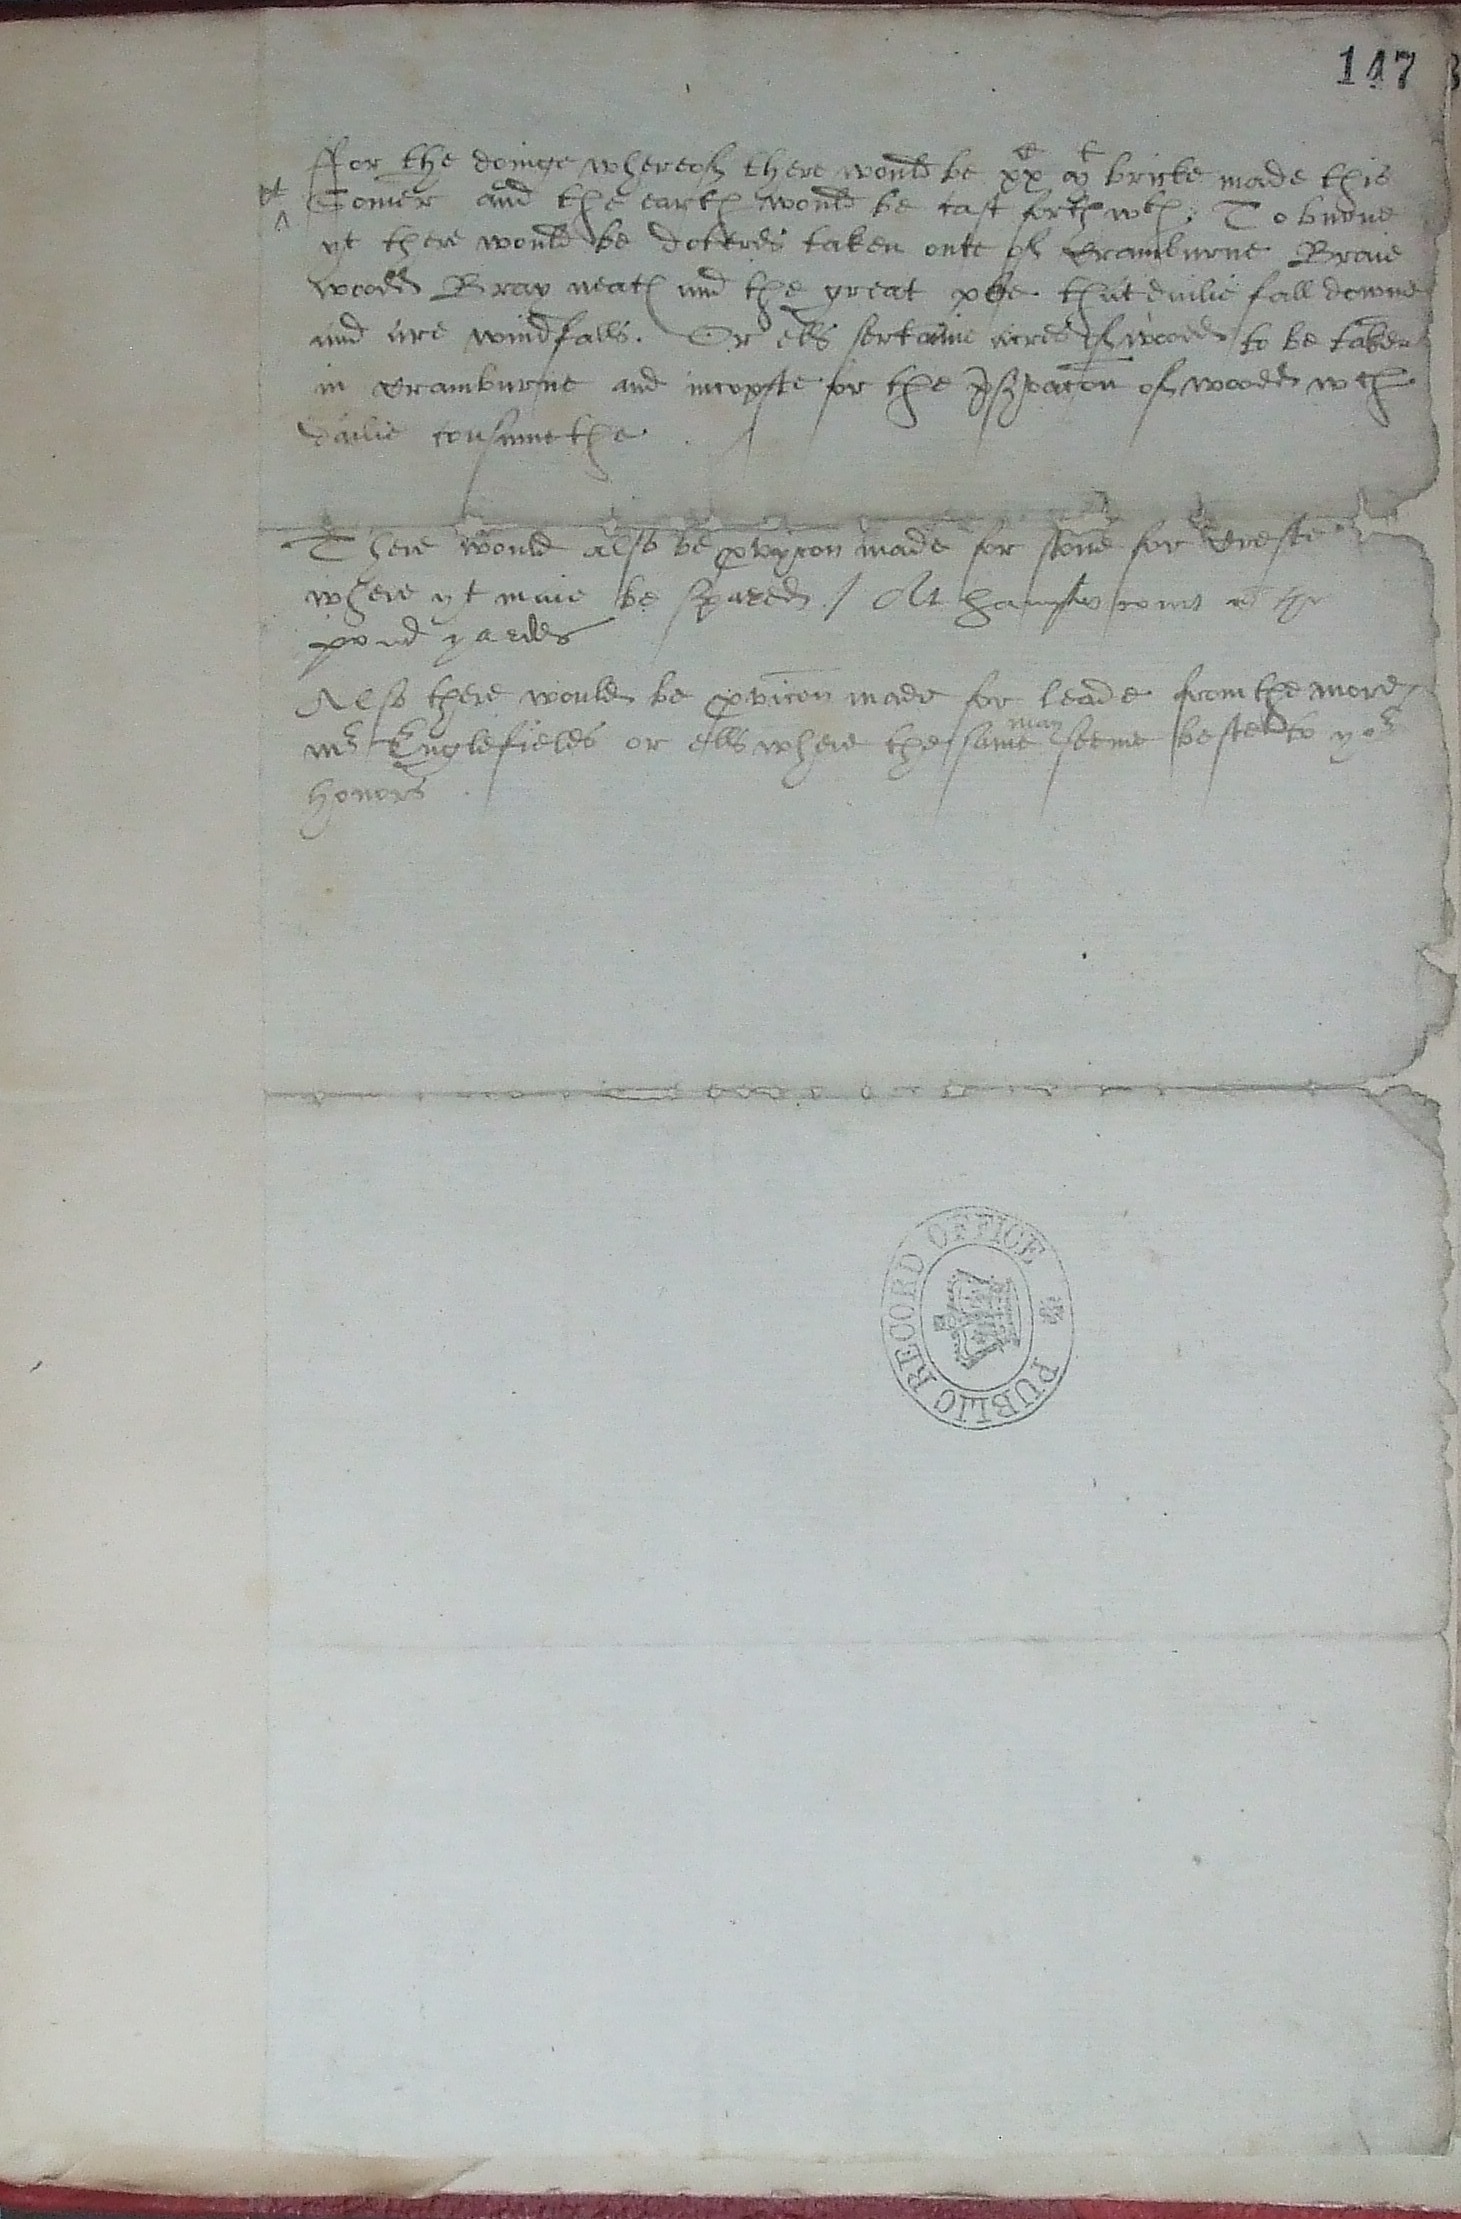 147
ffor the doinge whereof there would be xx c m t bricke made this
Somer and the earth would be cast forthwth. To burne
yt there would be dotterds taken oute of Cramburne Braie
woodd Bray neath and the great that dailie fall downe
and are windfalls. Or ells sertaine acres of woodd to be taken
in Cramburne and incopste for the of woodd wch
dailie consumethe
There would also be pvycon made for stone for Creste
where yt maie be spared / At hampto court
pond yardes
Also there would be pvicon made for leade from the more
mr Englefields or ells where the same may seeme beste to yor
honors .
PUBLIC RECORD OFFICE